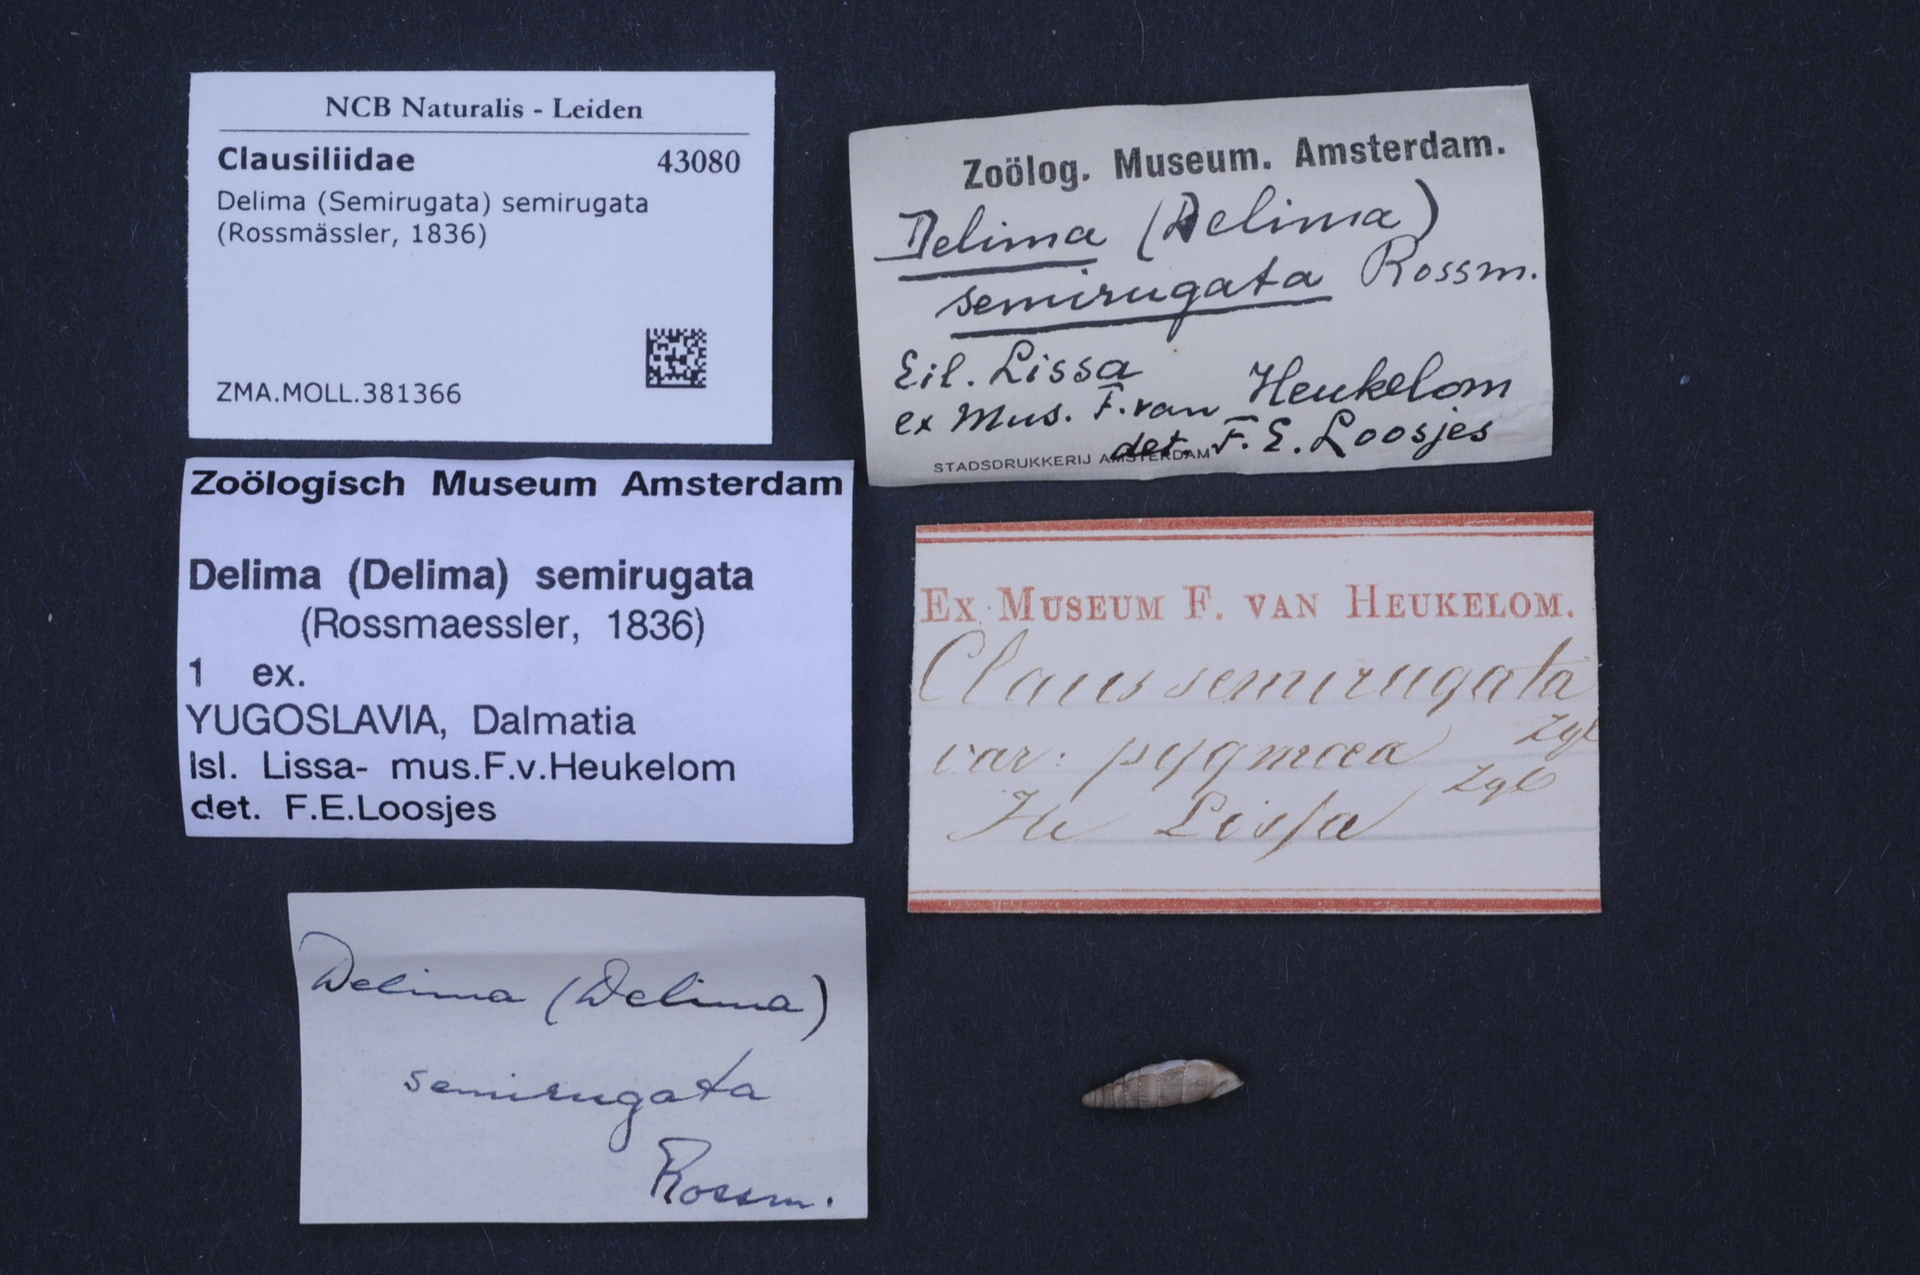 NCB Naturalis - Leiden
Clausiliidae 43080
Delima (Semirugata) semirugata
(Rossmässler, 1836)
ZMA.MOLL.381366
Zoölog. Museum. Amsterdam.
Delima (Delima)
semirugata Rossm.
Eil. Lissa
ex Mus. F. van Heukelom
det. F. E. Loosjes
STADSDRUKKERIJ AMSTERDAM
Zoölogisch Museum Amsterdam
Delima (Delima) semirugata
(Rossmaessler, 1836)
1 ex.
YUGOSLAVIA, Dalmatia
Isl. Lissa- mus.F.v.Heukelom
det. F.E.Loosjes
EX MUSEUM F. VAN HEUKELOM.
Claus semirugata
Zgl
var: pygmaea Zgl
Lissa
Delima (Delima)
semirugata
Rossm.